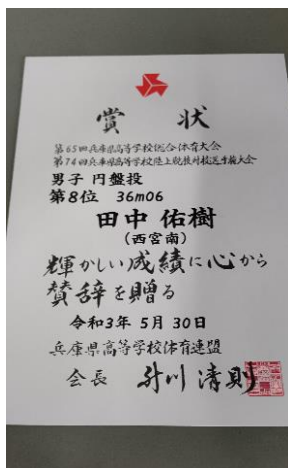 賞状
第65回兵庫県高等学校総合体育大会
第74回兵庫県高等学校陸上競技対校選手権大会
男子 円盤投
第8位 36m06
田中 佑樹
(西宮南)
輝かしい成績に心から
賛辞を贈る
令和3年 5月 30日
兵庫県高等学校体育連盟
会長 升川 清則